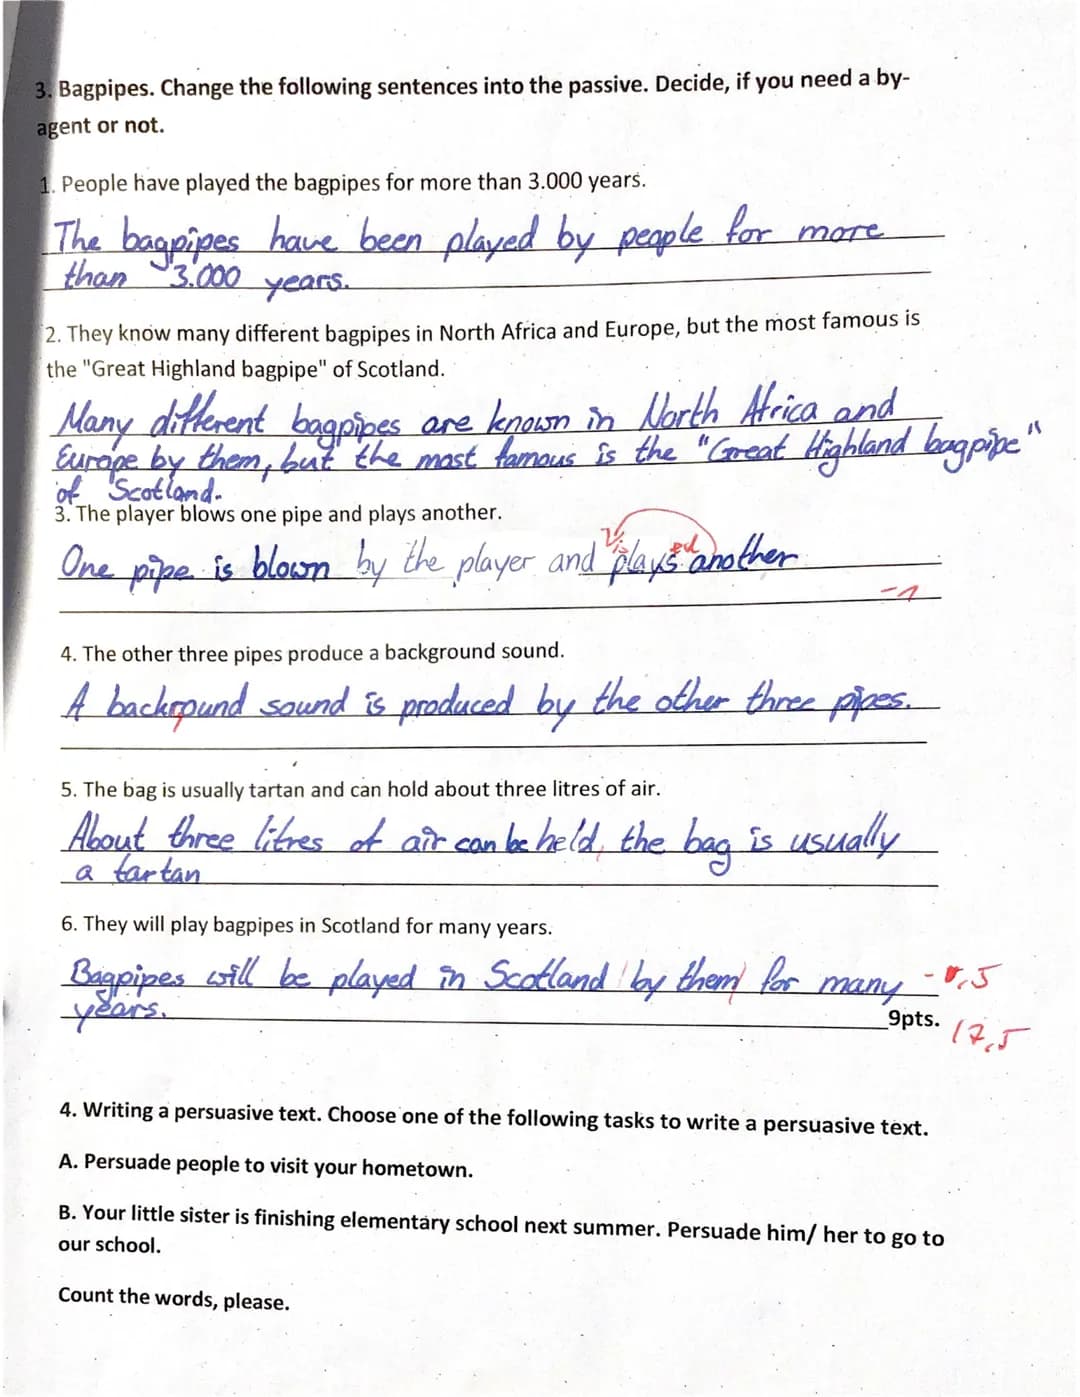 3. Bagpipes. Change the following sentences into the passive. Decide, if you need a by-
agent or not.
1. People have played the bagpipes for more than 3.000 years.
The bagpipes have been played by people for more
than 3.000 years.
2. They know many different bagpipes in North Africa and Europe, but the most famous is
the "Great Highland bagpipe" of Scotland.
Many different bagpipes are known in North Africa and
Europe by them, but the most famous is the "Great Highland bagpipe"
of Scotland.
3. The player blows one pipe and plays another.
is ed
One pipe is blown by the player and plays another
-1
4. The other three pipes produce a background sound.
A backround sound is produced by the other three pipes.
5. The bag is usually tartan and can hold about three litres of air.
About three litres of air can be held, the bag is usually
a tartan
6. They will play bagpipes in Scotland for many years.
Bagpipes will be played in Scotland by them for many
years.
9pts.
4. Writing a persuasive text. Choose one of the following tasks to write a persuasive text.
A. Persuade people to visit your hometown.
B. Your little sister is finishing elementary school next summer. Persuade him/ her to go to
our school.
Count the words, please.